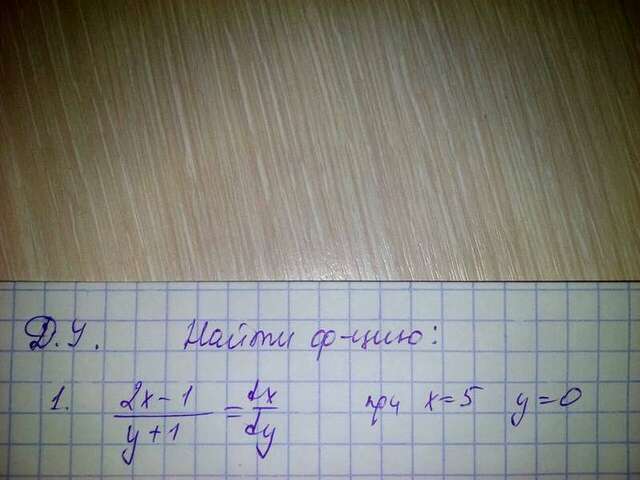 Д.У. Найти ф-цию:
1. (2x-1)/(y+1) = dx/dy при x=5 y=0